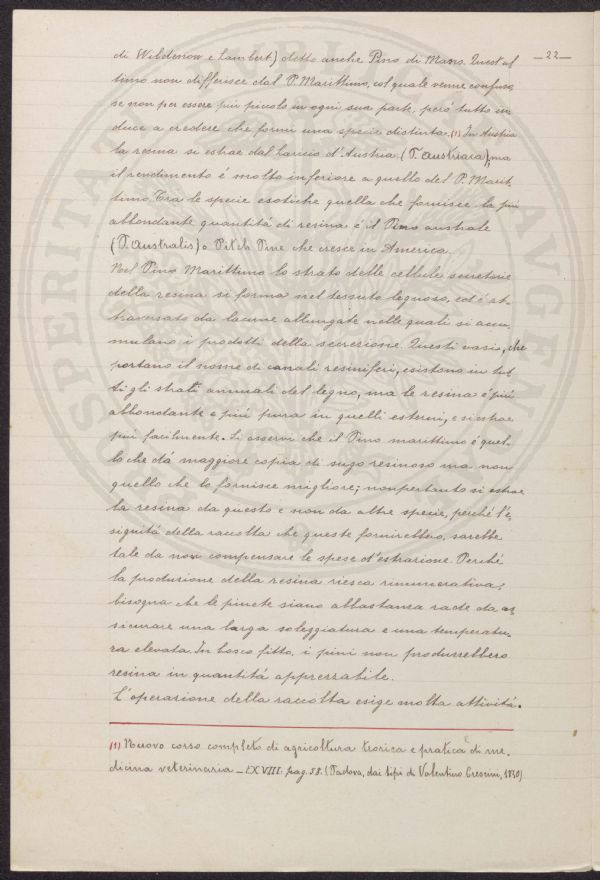 — 22 —
di Wildenow e Lambert) detto anche Pino di Mans. Quest'ul
timo non differisce dal P. Marittimo, col quale venne confuso,
se non per essere più piccolo in ogni sua parte, però tutto in,
duce a credere che formi una specie distinta. (1) In Austria
la resina si estrae dal Laricio d'Austria (P. austriaca), ma
il rendimento é molto inferiore a quello del P. Marit,
timo. Tra le specie esotiche quella che fornisce la piú
abbondante quantitá di resina é il Pino australe
(P. australis) o Pitch Pine che cresce in America.
Nel Pino Marittimo lo strato delle cellule secretorie
della resina si forma nel tessuto legnoso, ed é at,
traversato da lacune allungate nelle quali si accu,
mulano i prodotti della secrezione. Questi vasi, che
portano il nome di canali resiniferi, esistono in tut
ti gli strati annuali del legno, ma la resina é piú
abbondante e piú pura in quelli esterni, e si estrae
piú facilmente. Si osservi che il Pino marittimo é quel,
lo che dá maggiore copia di sugo resinoso ma non
quello che lo fornisce migliore; nonpertanto si estrae
la resina da questo e non da altre specie, perché l'e,
siguitá della raccolta che queste fornirebbero, sarebbe
tale da non compensare le spese d'estrazione. Perché
la produzione della resina riesca rimunerativa,
bisogna che le pinete siano abbastanza rade da as,
sicurare una larga soleggiatura e una temperatu,
ra elevata. In bosco fitto, i pini non produrrebbero
resina in quantitá apprezzabile.
L'operazione della raccolta esige molta attivitá.
(1) Nuovo corso completo di agricoltura teorica e pratica e di me,
dicina veterinaria — XVIII. pag. 58. (Padova, dai tipi di Valentino Crescini, 1830)